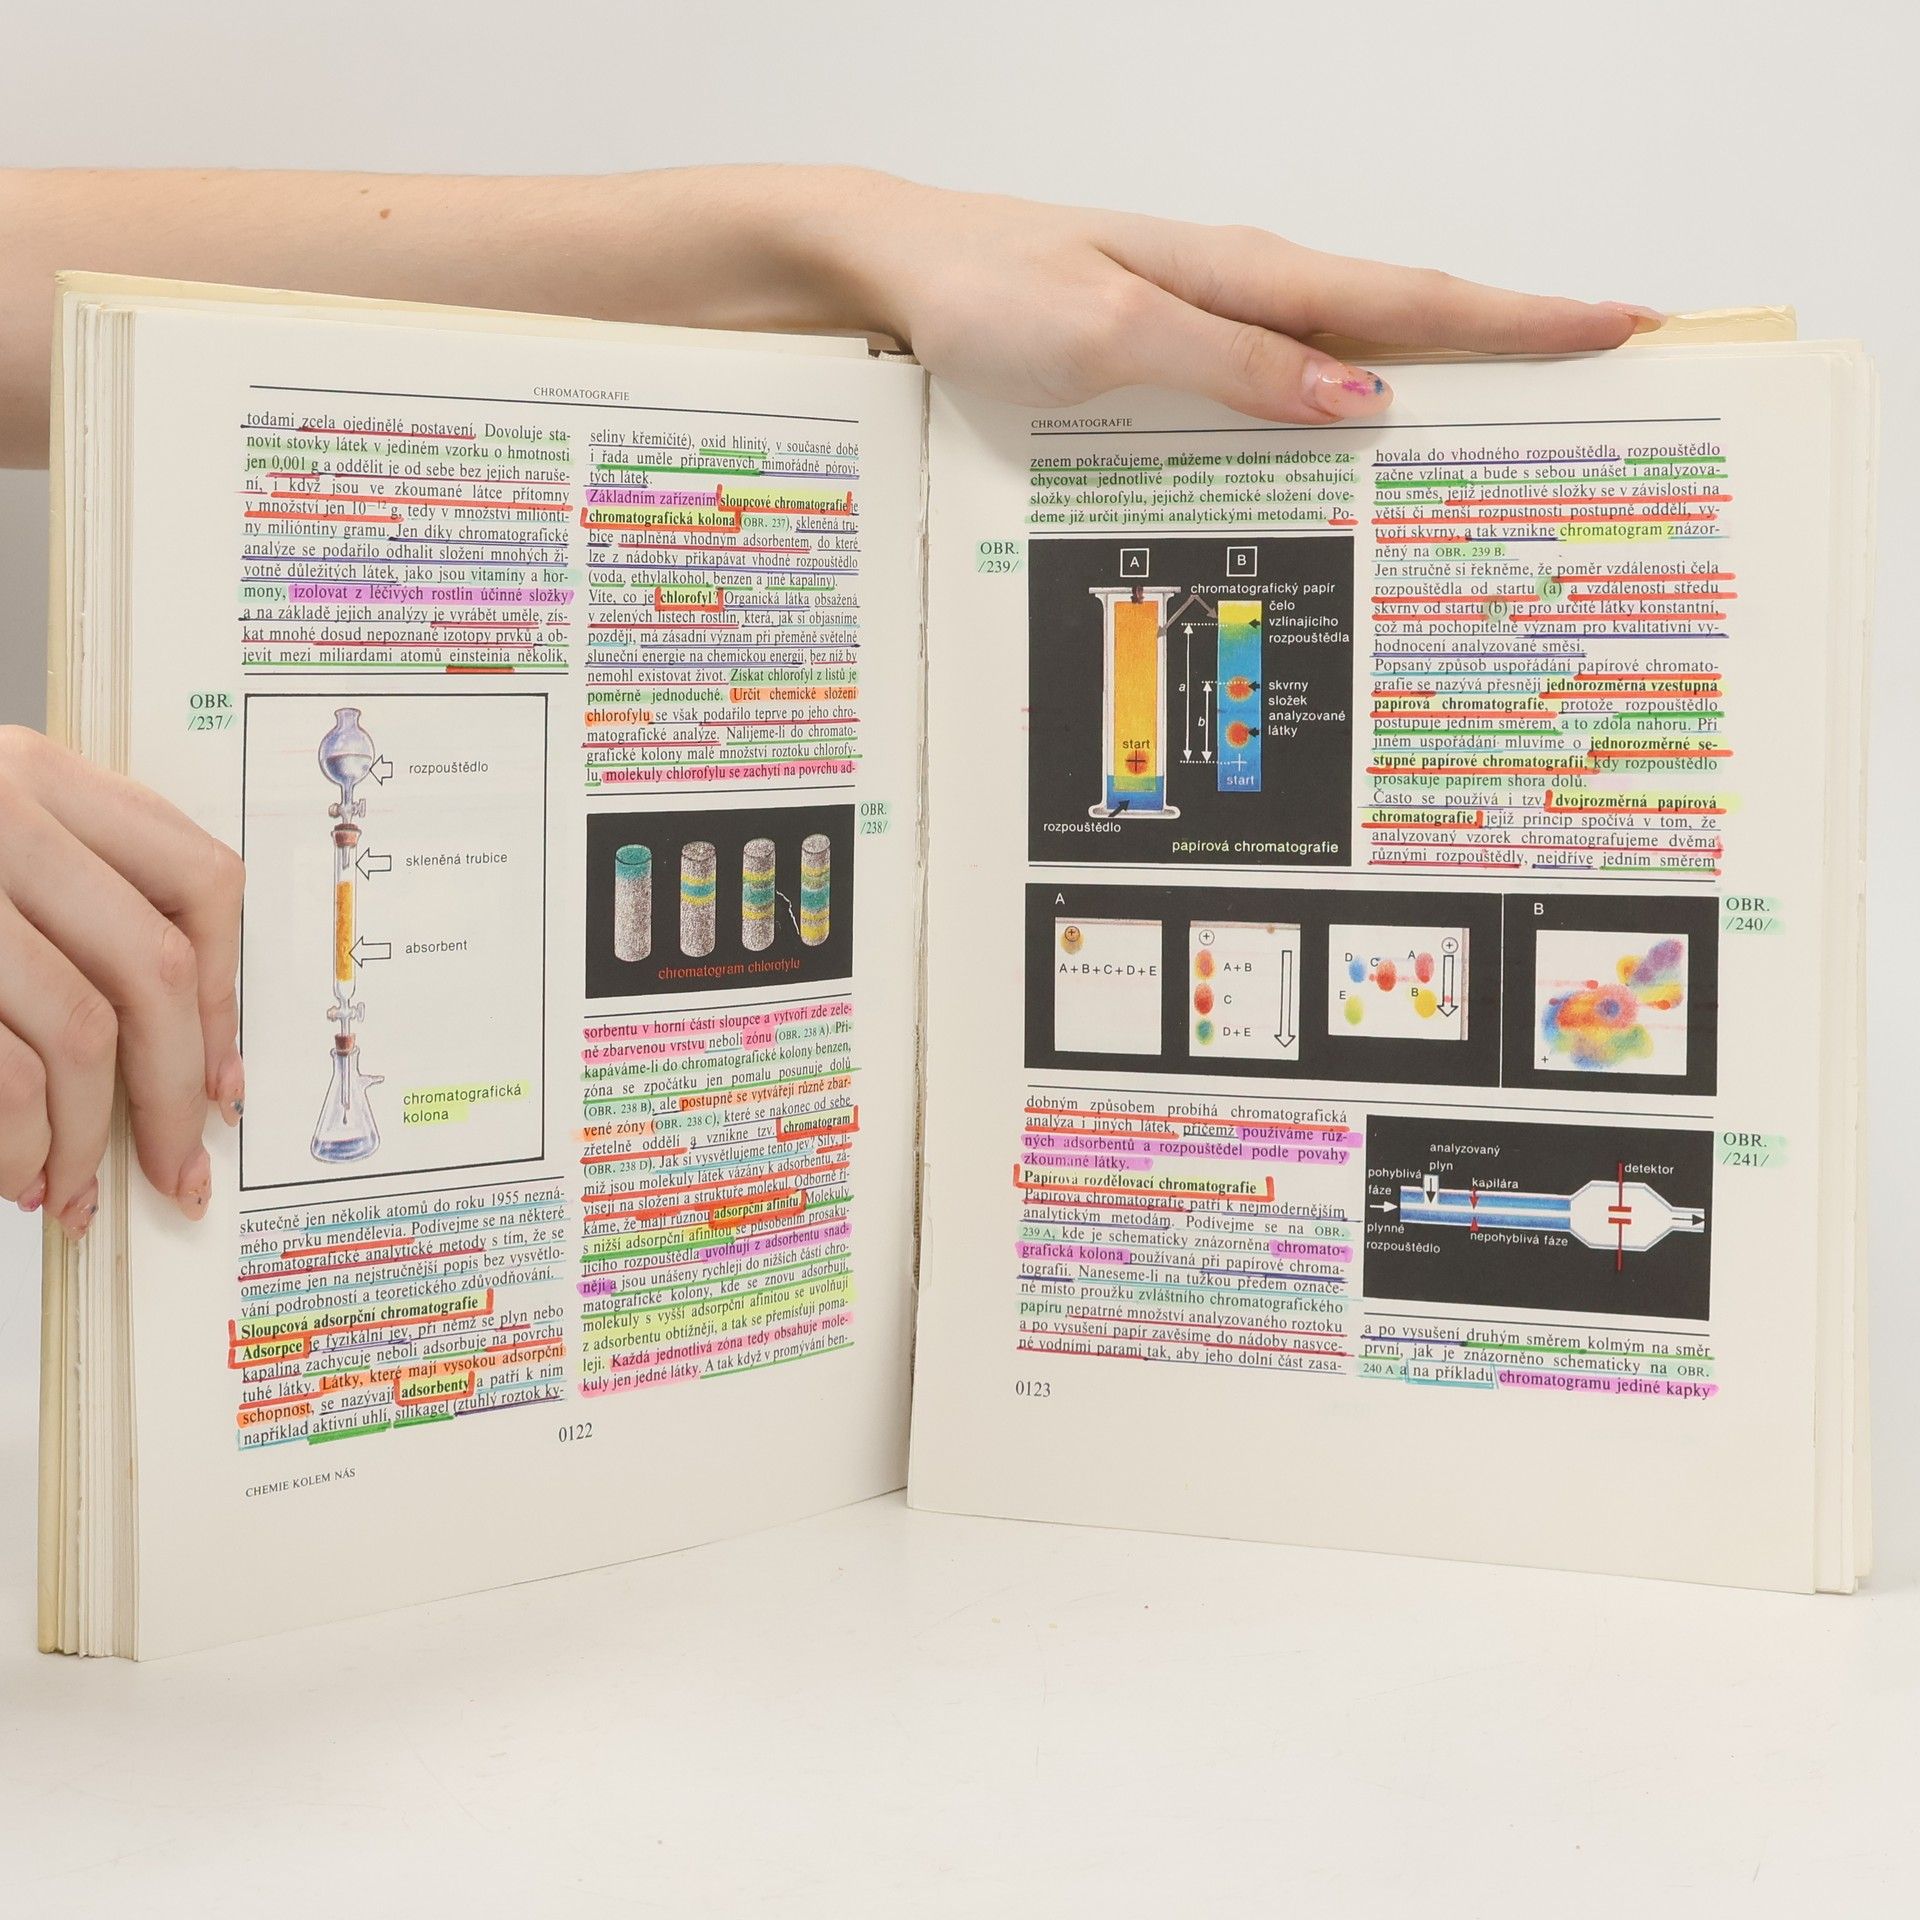 CHROMATOGRAFIE
todami zcela ojedinělé postavení. Dovoluje sta-
novit stovky látek v jediném vzorku o hmotnosti
jen 0,001 g a oddělit je od sebe bez jejich naruše-
ní, i když jsou ve zkoumané látce přítomny
v množství jen 10⁻¹² g, tedy v množství miliónti-
ny milióntiny gramu. Jen díky chromatografické
analýze se podařilo odhalit složení mnohých ži-
votně důležitých látek, jako jsou vitamíny a hor-
mony, izolovat z léčivých rostlin účinné složky
a na základě jejich analýzy je vyrábět uměle, zís-
kat mnohé dosud nepoznané izotopy prvků a ob-
jevit mezi miliardami atomů einsteinia několik,
OBR.
/237/
rozpouštědlo
skleněná trubice
absorbent
chromatografická
kolona
skutečně jen několik atomů do roku 1955 nezná-
mého prvku mendělevia. Podívejme se na některé
chromatografické analytické metody s tím, že se
omezíme jen na nejstručnější popis bez vysvětlo-
vání podrobností a teoretického zdůvodňování.
Sloupcová adsorpční chromatografie
Adsorpce je fyzikální jev, při němž se plyn nebo
kapalina zachycuje neboli adsorbuje na povrchu
tuhé látky. Látky, které mají vysokou adsorpční
schopnost, se nazývají adsorbenty a patří k nim
například aktivní uhlí, silikagel (ztuhlý roztok ky-
seliny křemičité), oxid hlinitý, v současné době
i řada uměle připravených mimořádně pórovi-
tých látek.
Základním zařízením sloupcové chromatografie je
chromatografická kolona (OBR. 237), skleněná tru-
bice naplněná vhodným adsorbentem, do které
lze z nádobky přikapávat vhodné rozpouštědlo
(voda, ethylalkohol, benzen a jiné kapaliny).
Víte, co je chlorofyl? Organická látka obsažená
v zelených listech rostlin, která, jak si objasníme
později, má zásadní význam při přeměně světelné
sluneční energie na chemickou energii, bez níž by
nemohl existovat život. Získat chlorofyl z listů je
poměrně jednoduché. Určit chemické složení
chlorofylu se však podařilo teprve po jeho chro-
matografické analýze. Nalijeme-li do chromato-
grafické kolony malé množství roztoku chlorofy-
lu, molekuly chlorofylu se zachytí na povrchu ad-
OBR.
/238/
chromatogram chlorofylu
sorbentu v horní části sloupce a vytvoří zde zele-
ně zbarvenou vrstvu neboli zónu (OBR. 238 A). Při-
kapáváme-li do chromatografické kolony benzen,
zóna se zpočátku jen pomalu posunuje dolů
(OBR. 238 B), ale postupně se vytvářejí různě zbar-
vené zóny (OBR. 238 C), které se nakonec od sebe
zřetelně oddělí a vznikne tzv. chromatogram
(OBR. 238 D). Jak si vysvětlujeme tento jev? Síly, ji-
miž jsou molekuly látek vázány k adsorbentu, zá-
visejí na složení a struktuře molekul. Odborně ří-
káme, že mají různou adsorpční afinitu. Molekuly
s nižší adsorpční afinitou se působením prosaku-
jícího rozpouštědla uvolňují z adsorbentu snad-
něji a jsou unášeny rychleji do nižších částí chro-
matografické kolony, kde se znovu adsorbují,
molekuly s vyšší adsorpční afinitou se uvolňují
z adsorbentu obtížněji, a tak se přemísťují poma-
leji. Každá jednotlivá zóna tedy obsahuje mole-
kuly jen jedné látky. A tak když v promývání ben-
0122
CHEMIE KOLEM NÁS
CHROMATOGRAFIE
zenem pokračujeme, můžeme v dolní nádobce za-
chycovat jednotlivé podíly roztoku obsahující
složky chlorofylu, jejichž chemické složení dove-
deme již určit jinými analytickými metodami. Po-
OBR.
/239/
A
B
chromatografický papír
čelo
vzlínajícího
rozpouštědla
a
b
skvrny
složek
analyzované
látky
start
start
rozpouštědlo
papírová chromatografie
A
A+B+C+D+E
A+B
C
D+E
D
C
A
E
B
B
OBR.
/240/
dobným způsobem probíhá chromatografická
analýza i jiných látek, přičemž používáme růz-
ných adsorbentů a rozpouštědel podle povahy
zkoumané látky.
Papírová rozdělovací chromatografie
Papírová chromatografie patří k nejmodernějším
analytickým metodám. Podívejme se na OBR.
239 A, kde je schematicky znázorněna chromato-
grafická kolona používaná při papírové chroma-
tografii. Naneseme-li na tužkou předem označe-
né místo proužku zvláštního chromatografického
papíru nepatrné množství analyzovaného roztoku
a po vysušení papír zavěsíme do nádoby nasyce-
né vodními parami tak, aby jeho dolní část zasa-
0123
hovala do vhodného rozpouštědla, rozpouštědlo
začne vzlínat a bude s sebou unášet i analyzova-
nou směs, jejíž jednotlivé složky se v závislosti na
větší či menší rozpustnosti postupně oddělí, vy-
tvoří skvrny, a tak vznikne chromatogram znázor-
něný na OBR. 239 B.
Jen stručně si řekněme, že poměr vzdálenosti čela
rozpouštědla od startu (a) a vzdálenosti středu
skvrny od startu (b) je pro určité látky konstantní,
což má pochopitelně význam pro kvalitativní vy-
hodnocení analyzované směsi.
Popsaný způsob uspořádání papírové chromato-
grafie se nazývá přesněji jednorozměrná vzestupná
papírová chromatografie, protože rozpouštědlo
postupuje jedním směrem, a to zdola nahoru. Při
jiném uspořádání mluvíme o jednorozměrné se-
stupné papírové chromatografii, kdy rozpouštědlo
prosakuje papírem shora dolů.
Často se používá i tzv. dvojrozměrná papírová
chromatografie, jejíž princip spočívá v tom, že
analyzovaný vzorek chromatografujeme dvěma
různými rozpouštědly, nejdříve jedním směrem
OBR.
/241/
analyzovaný
plyn
pohyblivá
fáze
kapilára
detektor
plynné
rozpouštědlo
nepohyblivá fáze
a po vysušení druhým směrem kolmým na směr
první, jak je znázorněno schematicky na OBR.
240 A a na příkladu chromatogramu jediné kapky